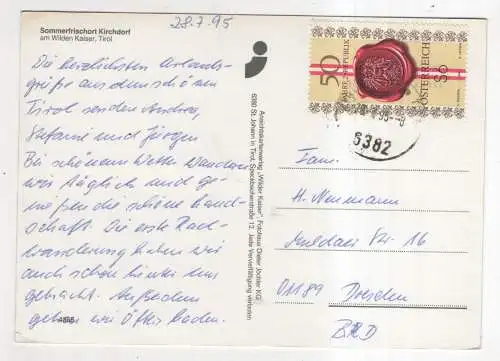 28.7.95
Sommerfrischort Kirchdorf
am Wilden Kaiser, Tirol
Die herzlichsten Urlaubs-
grüße aus dem schönen
Tirol senden Andrea,
Stefanie und Jürgen
Bei schönem Wetter wandern
wir täglich und ge-
nießen die schöne Land-
schaft. Die erste Rad-
wanderung haben wir
auch schon hinter uns
gebracht. Außerdem
gehen wir öfter baden.
Ansichtskartenverlag „Wilder Kaiser“, Fotohaus Dieter Jöchler KG
6380 St. Johann in Tirol, Speckbacherstraße 12. Jede Vervielfältigung verboten
50 JAHRE REPUBLIK
ÖSTERREICH S6
6382
Fam.
H. Neumann
Str. 16
01189 Dresden
BRD